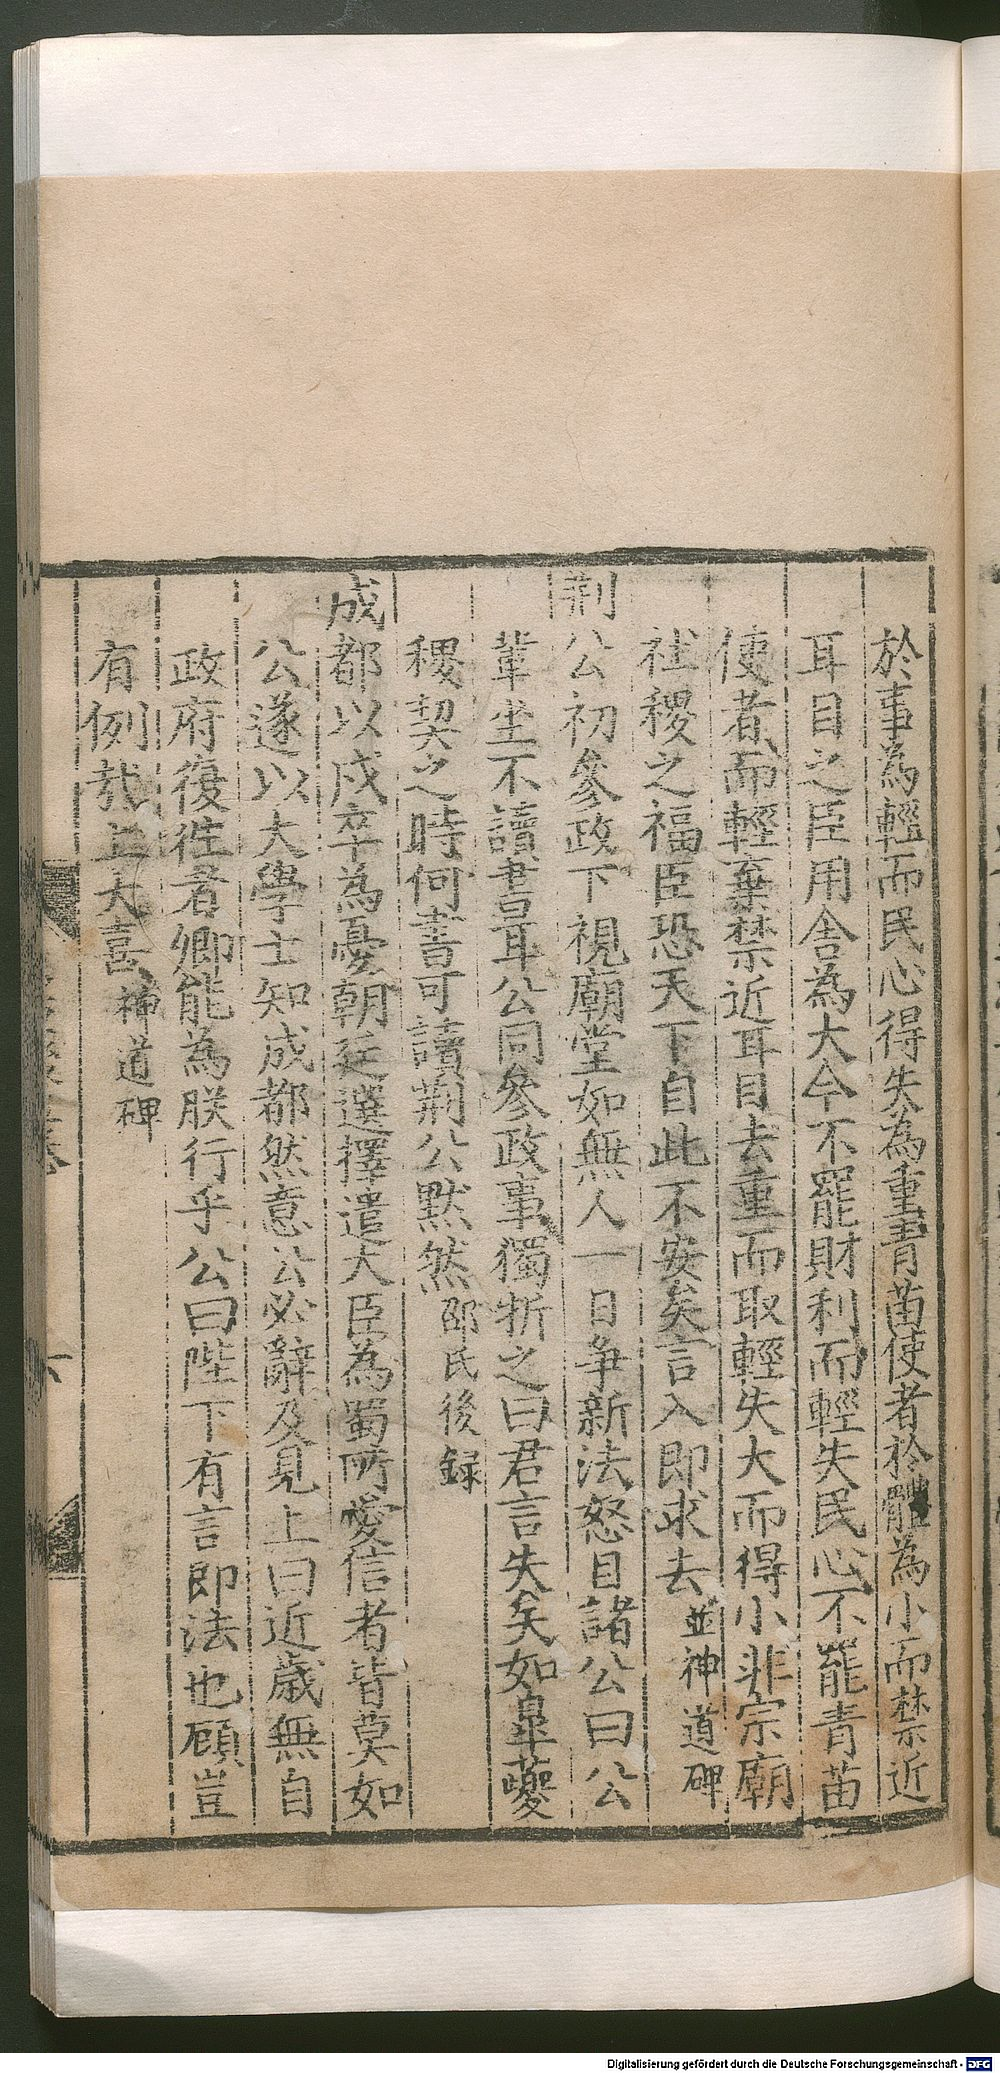 於事為輕而民心得失為重青苗使者於體為小而禁近
耳目之臣用舍為大今不罷財利而輕失民心不罷青苗
使者而輕棄禁近耳目去重而取輕失大而得小非宗廟
社稷之福臣恐天下自此不安矣言入即求去並神道碑
荆公初參政下視廟堂如無人一日争新法怒目諸公曰公
輩坐不讀書耳公同參政事獨折之曰君言失矣如臯䕫
稷契之時何書可讀荆公黙然邵氏後録
成都以戍卒為憂朝廷選擇遣大臣為蜀所愛信者皆莫如
公遂以大學士知成都然意公必辭及見上曰近歳無自
政府復徃者卿能為朕行乎公曰陛下有言即法也顧豈
有例哉上大喜神道碑
六
Digitalisierung gefördert durch die Deutsche Forschungsgemeinschaft - DFG